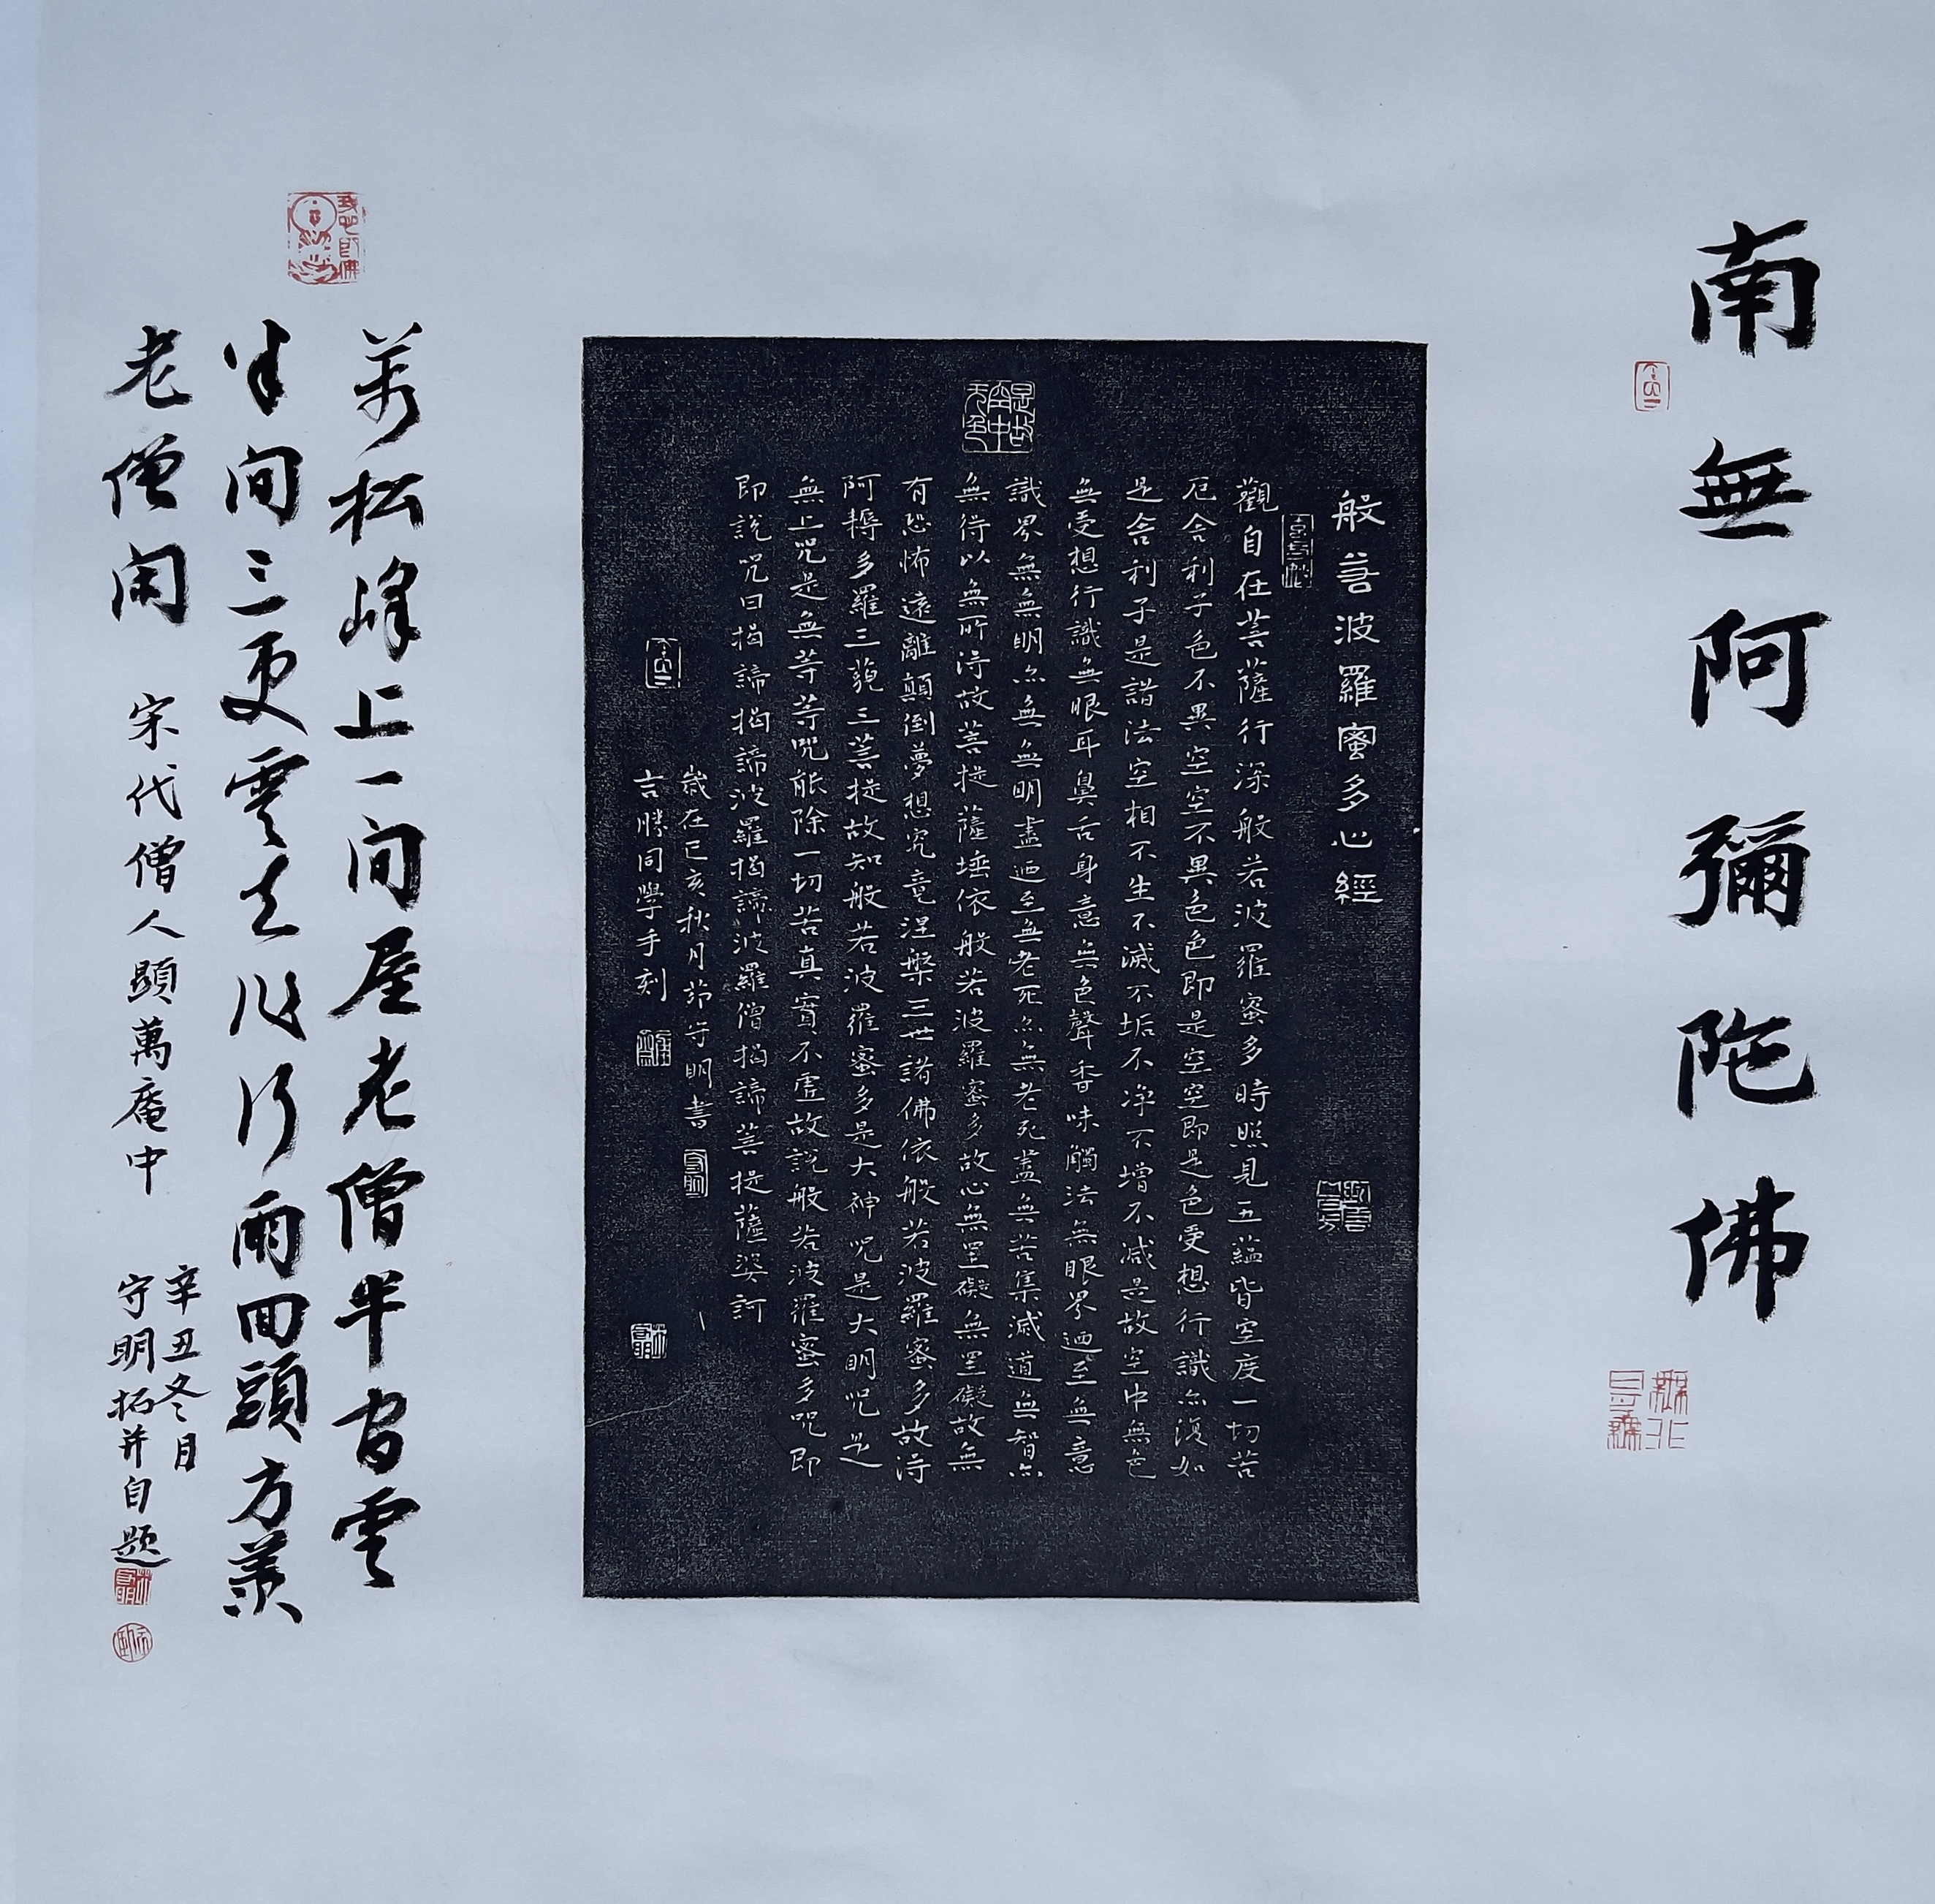 南無阿彌陀佛
般若波羅蜜多心經
觀自在菩薩行深般若波羅蜜多時照見五蘊皆空度一切苦
厄舍利子色不異空空不異色色即是空空即是色受想行識亦復如
是舍利子是諸法空相不生不滅不垢不淨不增不減是故空中無色
無受想行識無眼耳鼻舌身意無色聲香味觸法無眼界迺至無意
識界無無明亦無無明盡迺至無老死亦無老死盡無苦集滅道無智亦
無得以無所得故菩提薩埵依般若波羅蜜多故心無罣礙無罣礙故無
有恐怖遠離顛倒夢想究竟涅槃三世諸佛依般若波羅蜜多故得
阿耨多羅三藐三菩提故知般若波羅蜜多是大神咒是大明咒是
無上咒是無等等咒能除一切苦真實不虛故說般若波羅蜜多咒即
即說咒曰揭諦揭諦波羅揭諦波羅僧揭諦菩提薩婆訶
歲在己亥秋月節守明書
言勝同學手刻
是故
空中
無色
萬松峰上一间屋老僧半间雲
半间三更雲去作行雨回頭方羡
老僧闲
宋代僧人顯萬庵中
辛丑冬月
守明拓并自题
我心即佛